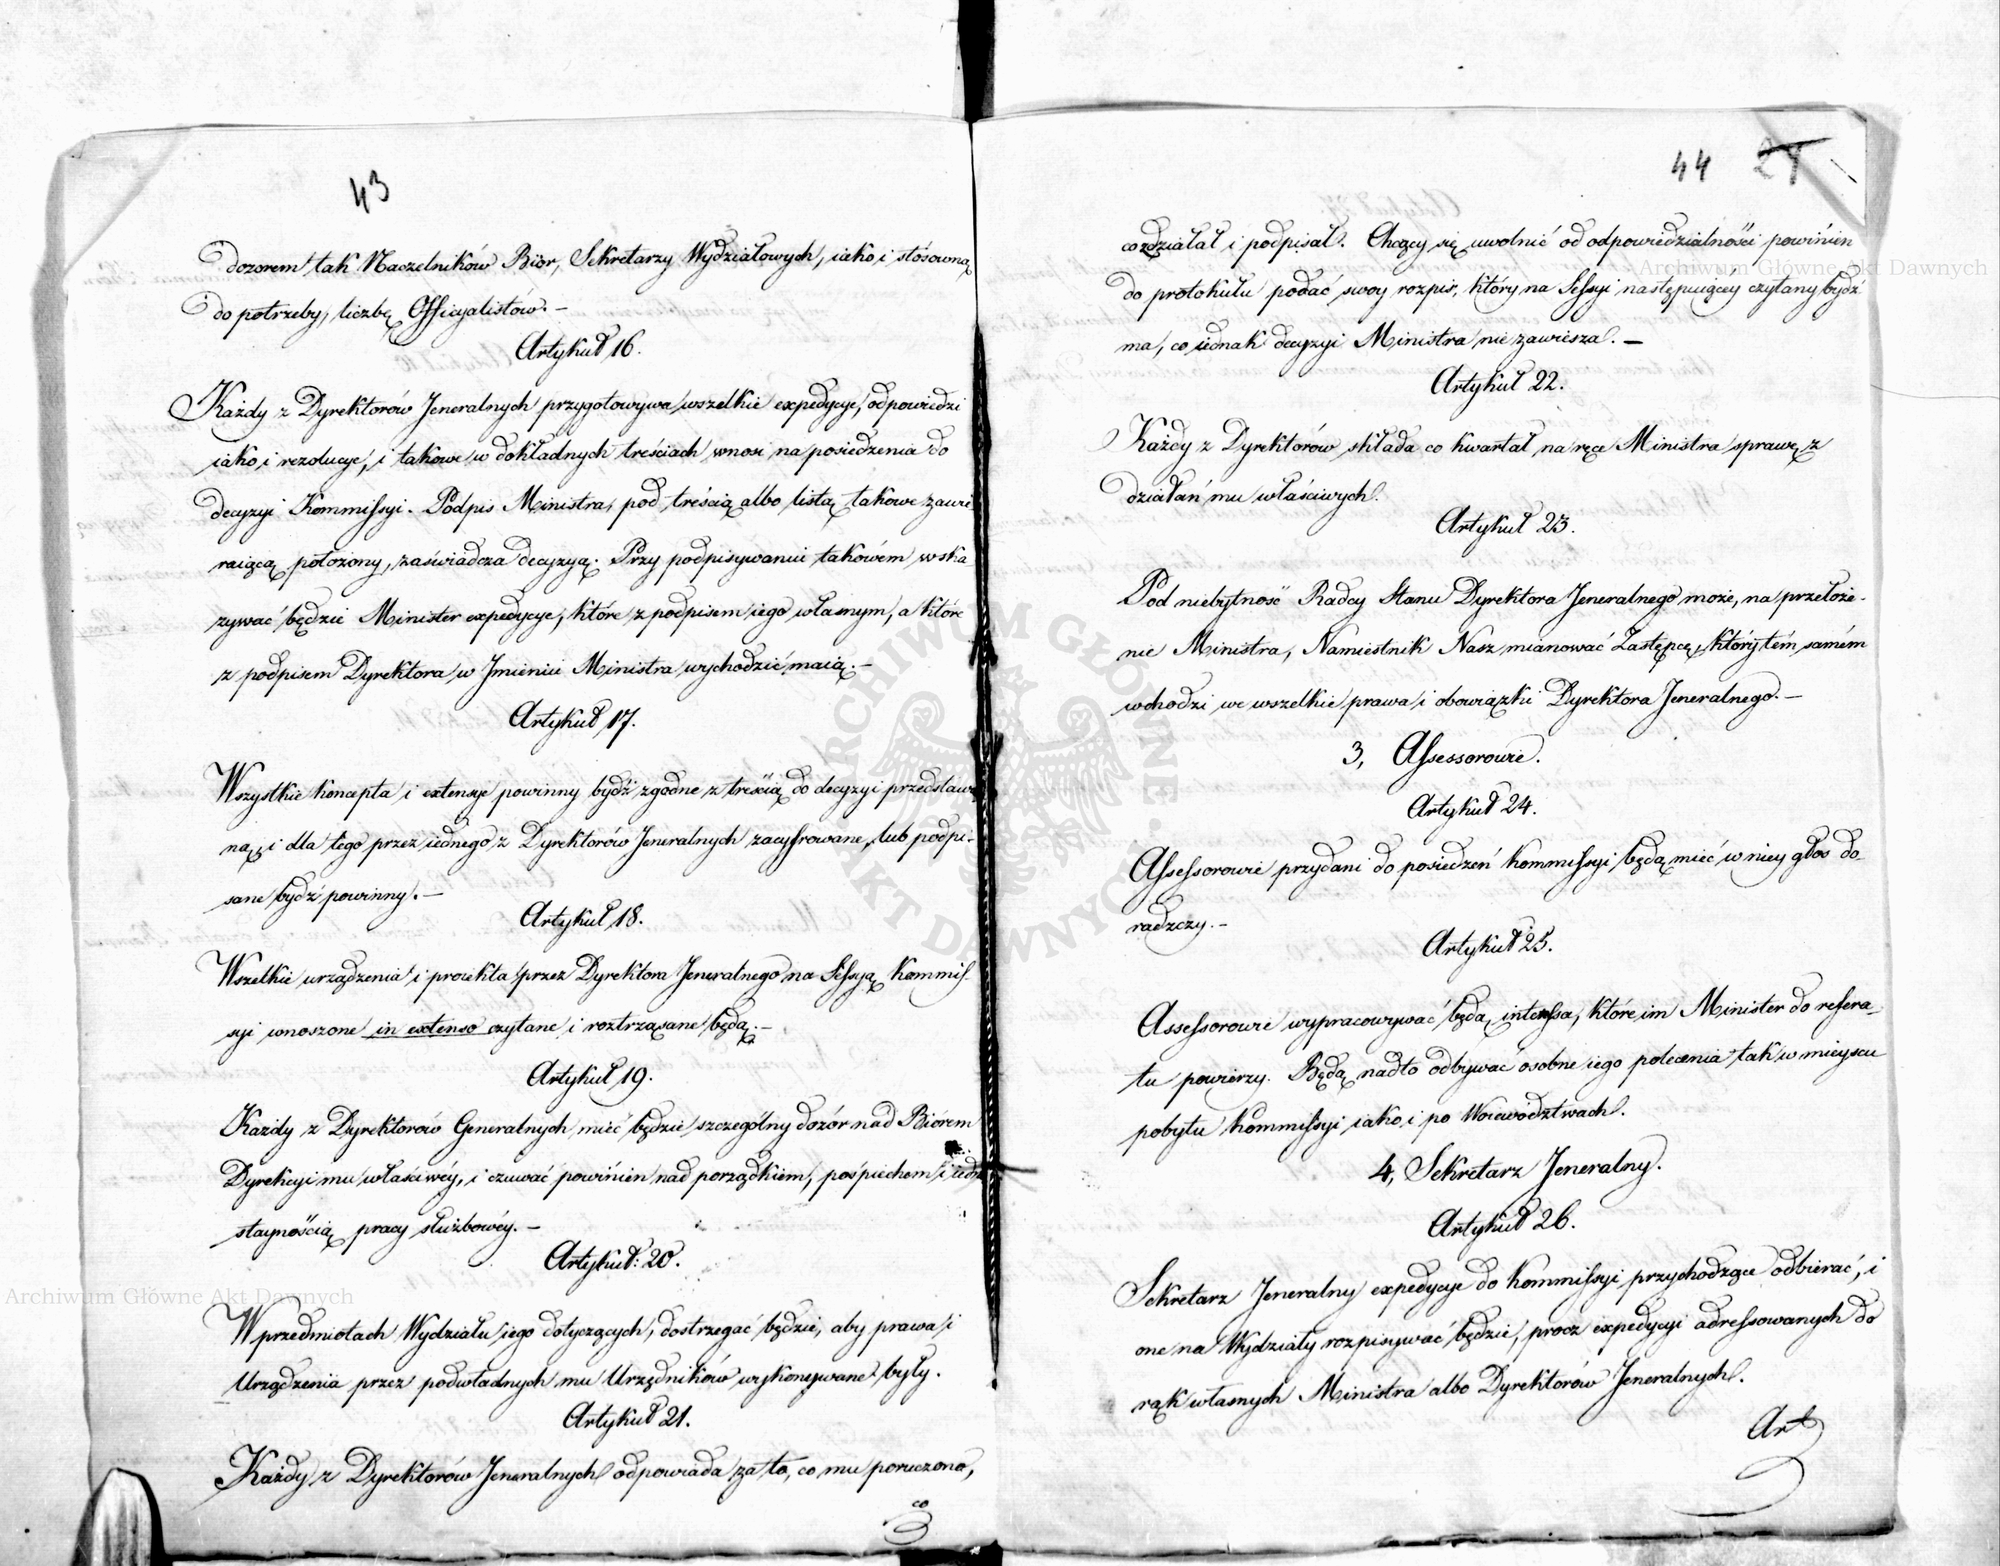 43
dozorem tak Naczelników Biór, Sekretarzy Wydziałowych, iako i stósowną
do potrzeby, liczbę Officyalistów. –
Artykuł 16.
Każdy z Dyrektorów Jeneralnych przygotowywa wszelkie expedycye, odpowiedzi
iako i rezolucye, i takowe w dokładnych treściach wnosi na posiedzenia do
decyzyi Kommissyi. Podpis Ministra, pod treścią albo listą takowe zawie
raiącą położony, zaświadcza decyzyą. Przy podpisywaniu takowém wska
zywać będzie Minister expedycye, które z podpisem iego własnym, a które
z podpisem Dyrektora w Jmieniu Ministra wychodzić maią. –
Artykuł 17.
Wszystkie koncepta i extensye powinny bydź zgodne z treścią do decyzyi przedstawio
ną, i dla tego przez iednego z Dyrektorów Jeneralnych zacyfrowane, lub podpi-
sane bydź powinny. –
Artykuł 18.
Wszelkie urządzenia i proiekta przez Dyrektora Jeneralnego na Sessyą Kommis-
syi wnoszone in extenso czytane i roztrząsane będą. –
Artykuł 19.
Każdy z Dyrektorów Generalnych mieć będzie szczególny dozór nad Biórem
Dyrekcyi mu właściwéy, i czuwać powinien nad porządkiem, pośpiechem i iedno
staynością pracy służbowéy. –
Artykuł: 20.
W przedmiotach Wydziału iego dotyczących, dostrzegać będzie, aby prawa i
Urządzenia przez podwładnych mu Urzędników wykonywane były.
Artykuł 21.
Każdy z Dyrektorów Jeneralnych odpowiada za to, co mu poruczono,
co
44 21
co zdziałał i podpisał. Chcący się uwolnić od odpowiedzialności powinien
do protokułu podać swoy rozpis, który na Sessyi następuiącéy czytany bydź
ma, co iednak decyzyi Ministra nie zawiesza. –
Artykuł 22.
Każdy z Dyrektorów składa co kwartał na ręce Ministra sprawę z
działań mu właściwych.
Artykuł 23.
Pod niebytność Radcy Stanu Dyrektora Jeneralnego może, na przełoże-
nie Ministra, Namiestnik Nasz mianować Zastępcę, który tém samém
wchodzi we wszelkie prawa i obowiązki Dyrektora Jeneralnego. –
3, Assessorowie.
Artykuł 24.
Assessorowie przydani do posiedzeń Kommissyi będą mieć w niey głos do-
radzczy. –
Artykuł 25.
Assessorowie wypracowywać będą interessa, które im Minister do refera-
tu powierzy. Będą nadto odbywać osobne iego polecenia tak w mieyscu
pobytu Kommissyi iako i po Woiewództwach.
4, Sekretarz Jeneralny.
Artykuł 26.
Sekretarz Jeneralny expedycye do Kommissyi przychodzące odbierać, i
one na Wydziały rozpisywać będzie, prócz expedycyi adressowanych do
rąk własnych Ministra albo Dyrektorów Jeneralnych.
Art
Archiwum Główne Akt Dawnych
Archiwum Główne Akt Dawnych
ARCHIWUM GŁÓWNE AKT DAWNYCH